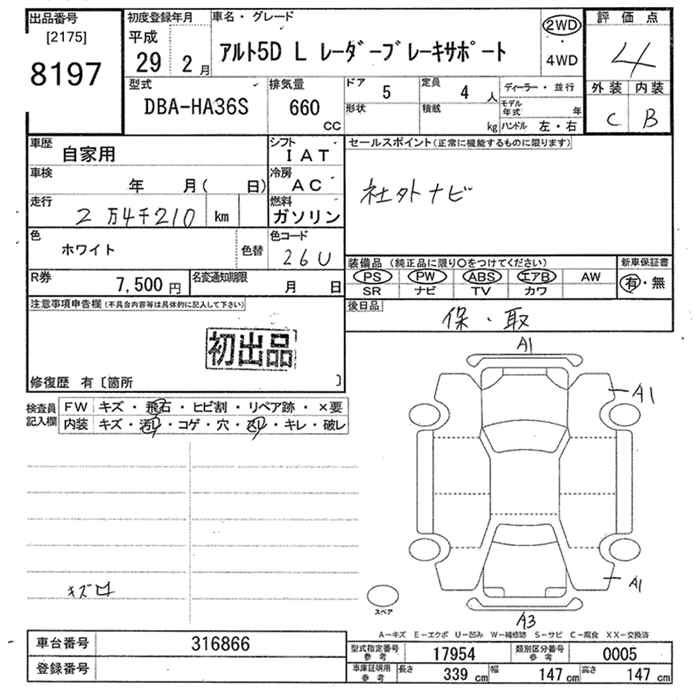 出品番号
[2175]
8197
初度登録年月
平成
29年 2月
車名・グレード
アルト5D L レーダーブレーキサポート
2WD
・
4WD
評価点
4
外装 内装
C B
型式
DBA-HA36S
排気量
660
CC
ドア
5
定員
4 人
形状
積載
kg
ディーラー・並行
モデル年式 年
ハンドル 左・右
車歴
自家用
シフト
IAT
車検
年 月( 日)
冷房
AC
走行
2万4千210 km
燃料
ガソリン
色
ホワイト
色替
色コード
26U
R券
7,500円
名変通知期限
月 日
セールスポイント(正常に機能するものに限ります)
社外ナビ
装備品 (純正品に限り○をつけてください)
PS PW ABS エアB AW
SR ナビ TV カワ
新車保証書
有・無
後日品
保・取
注意事項申告欄(不具合内容等は具体的に記入して下さい)
初出品
修復歴 有〔箇所 〕
検査員記入欄
FW キズ・飛石・ヒビ割・リペア跡・×要
内装 キズ・汚れ・コゲ・穴・スレ・キレ・破レ
A1
A1
A1
A3
スペア
A-キズ E-エクボ U-凹み W-補修跡 S-サビ C-腐食 XX-交換済
車台番号
316866
登録番号
型式指定番号参考
17954
類別区分番号参考
0005
車庫証明用参考
長さ 339 cm 幅 147 cm 高さ 147 cm